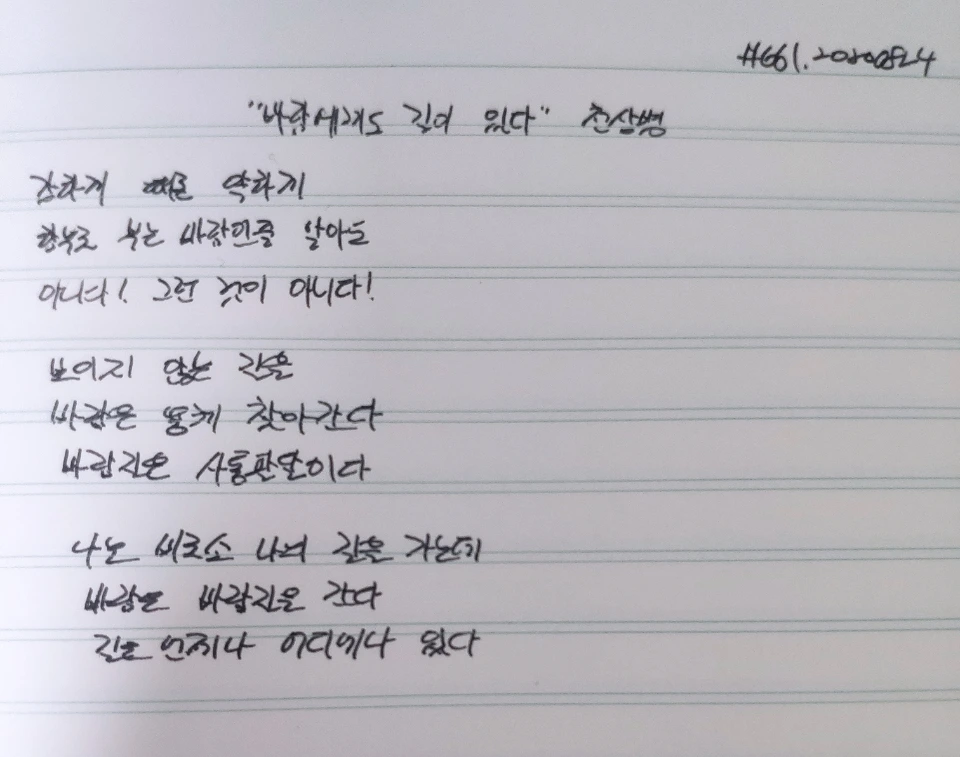 #661. 20200824
"바람에게도 길이 있다" 천상병
강하게 때론 약하게
함부로 부는 바람인줄 알아도
아니다! 그런 것이 아니다!
보이지 않는 길을
바람은 용케 찾아간다
바람길은 사통팔달이다
나는 비로소 나의 길을 가는데
바람은 바람길을 간다
길은 언제나 어디에나 있다